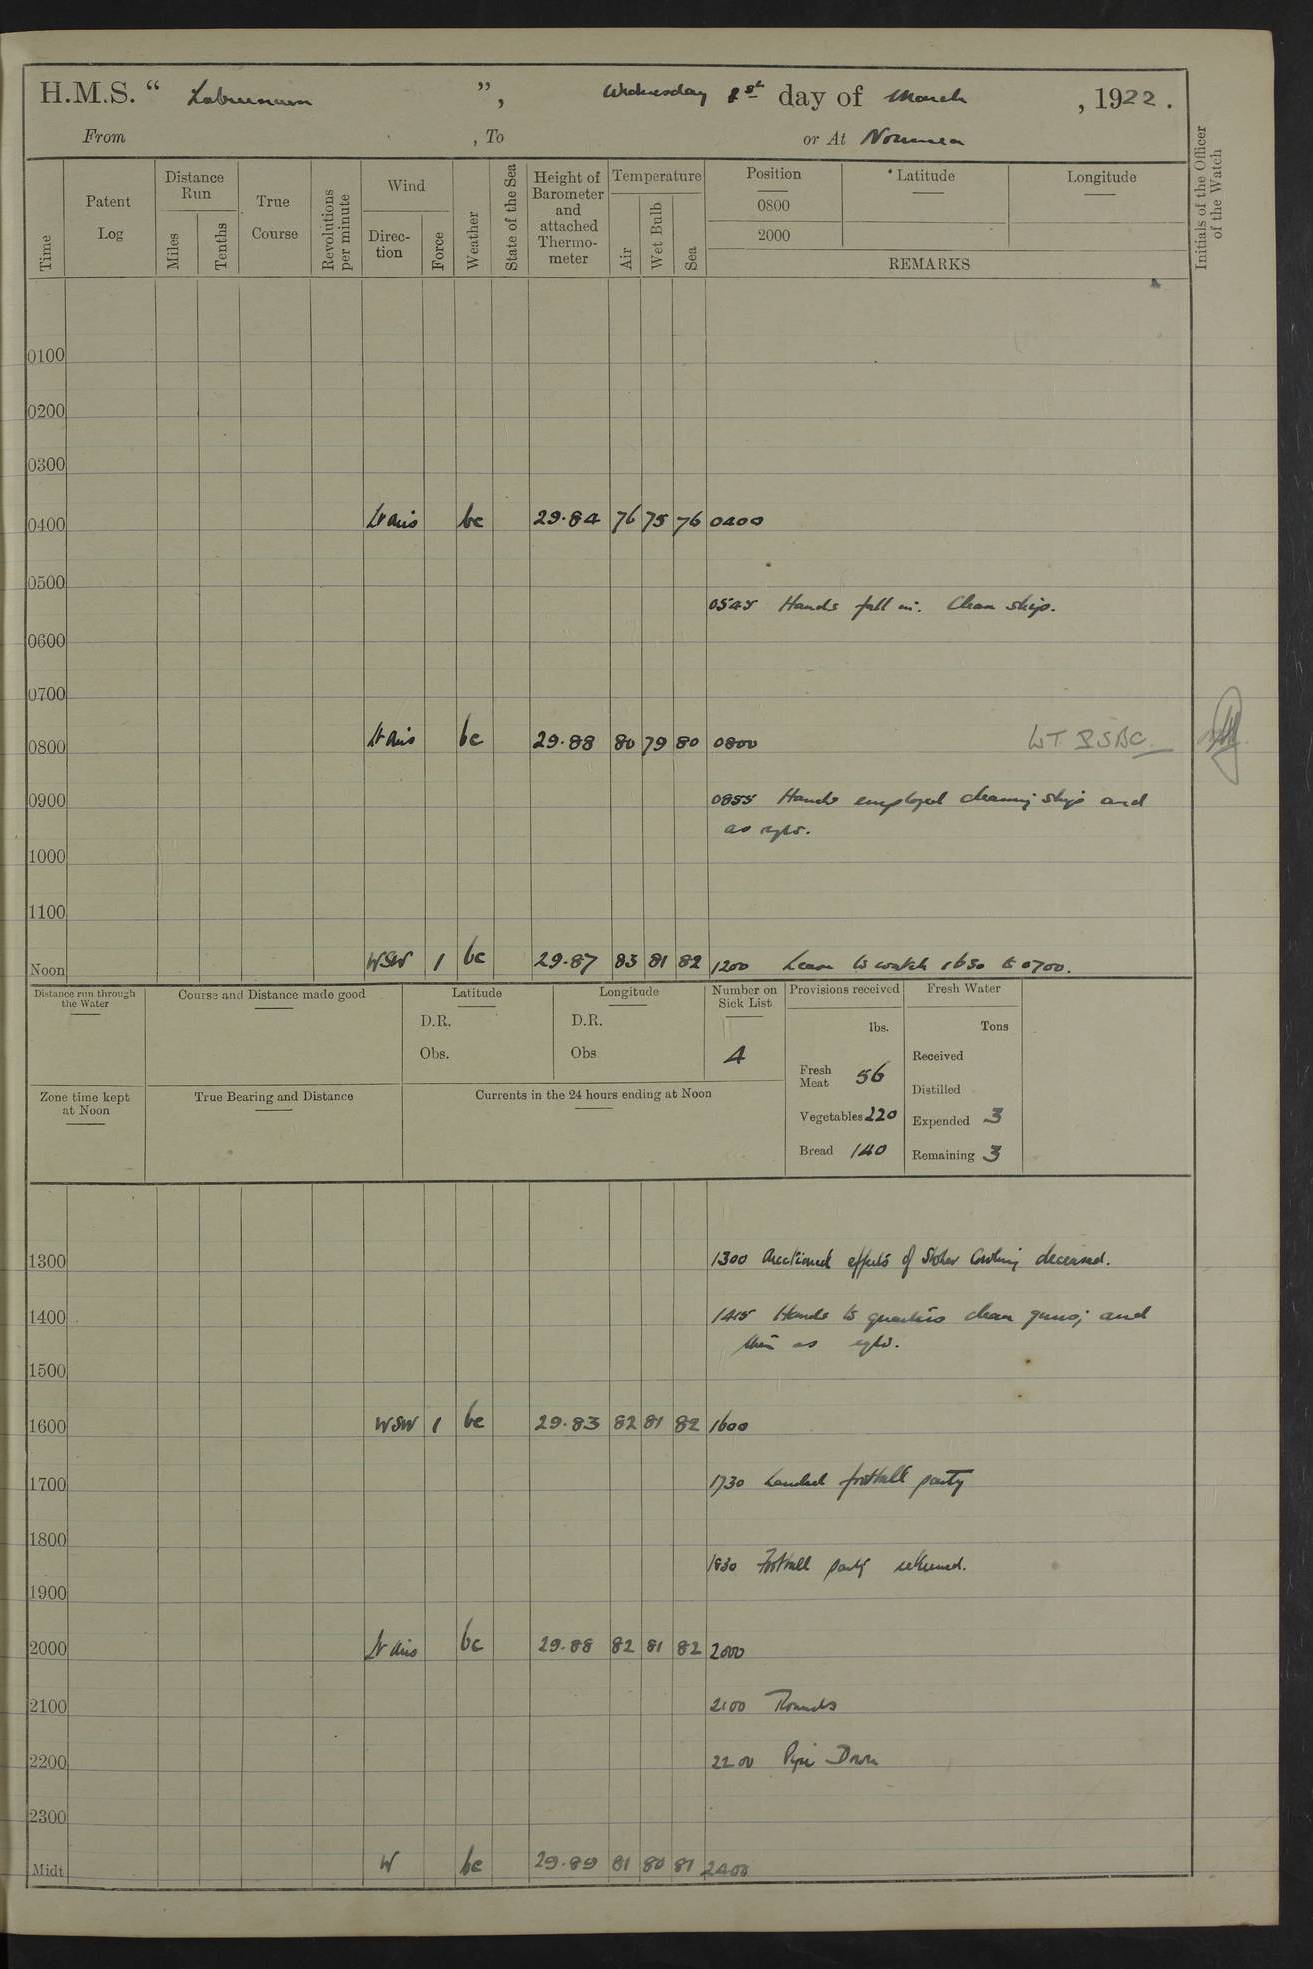 H.M.S. “ Laburnum ”, Wednesday 1st day of March , 1922.
From , To or At Noumea
Time
Patent Log
Distance Run
Miles
Tenths
True Course
Revolutions per minute
Wind
Direc- tion
Force
Weather
State of the Sea
Height of Barometer and attached Thermo- meter
Temperature
Air
Wet Bulb
Sea
Position
0800
2000
Latitude
Longitude
REMARKS
Initials of the Officer of the Watch
0100
0200
0300
0400 Lt airs bc 29.84 76 75 76 0400
0500
0545 Hands fall in. Clean ship.
0600
0700
0800 Lt airs bc 29.88 80 79 80 0800
0900
0855 Hands employed cleaning ship and
as reqte.
1000
1100
Noon WSW 1 bc 29.87 83 81 82 1200 Leave to watch 1630 to 0700.
Distance run through the Water
Course and Distance made good
Latitude
D.R.
Obs.
Longitude
D.R.
Obs
Number on Sick List
4
Provisions received
lbs.
Fresh Meat 56
Vegetables 220
Bread 140
Fresh Water
Tons
Received
Distilled
Expended 3
Remaining 3
Zone time kept at Noon
True Bearing and Distance
Currents in the 24 hours ending at Noon
1300
1300 Auctioned effects of Stoker deceased.
1400
1415 Hands to quarters clean guns; and
then as reqte.
1500
1600 WSW 1 bc 29.83 82 81 82 1600
1700
1730 Landed football party
1800
1830 Football party returned.
1900
2000 Lt airs bc 29.88 82 81 82 2000
2100
2100 Rounds
2200
2200 Pipe Down
2300
Midt W bc 29.89 81 80 81 2400